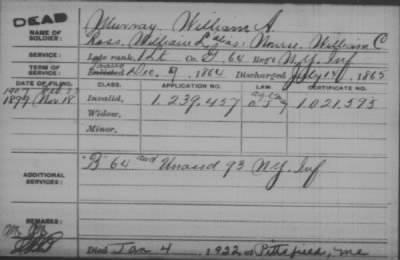 DEAD
Murray, William A.
NAME OF SOLDIER:
Ross, William L. alias: Morse, William C
SERVICE:
Late rank, 1 Lt Co. G, 64 Reg't N.Y. Inf
TERM OF SERVICE:
Enlisted Dec. 9, 1864 Discharged July 14, 1865
DATE OF FILING. CLASS. APPLICATION NO. LAW. CERTIFICATE NO.
1907
1899 Nov. 18 Invalid, 1.239.457 1.021.595
Widow,
Minor,
ADDITIONAL SERVICES:
"B" 64 and Unassd 93 N.Y. Inf
REMARKS:
Died Jan 4, 1922 at Pittsfield, Me